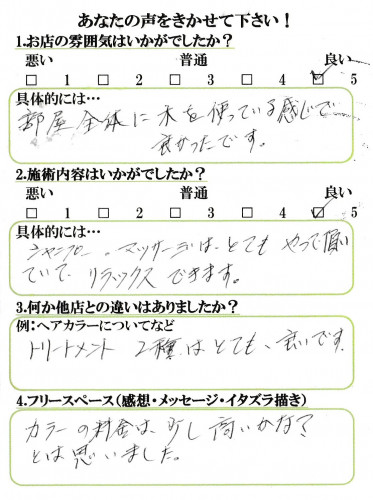 あなたの声をきかせて下さい!
1.お店の雰囲気はいかがでしたか?
悪い 普通 良い
□ 1 □ 2 □ 3 □ 4 ☑ 5
具体的には…
部屋全体に木を使っている感じで
良かったです。
2.施術内容はいかがでしたか?
悪い 普通 良い
□ 1 □ 2 □ 3 □ 4 ☑ 5
具体的には…
シャンプー。マッサージは、とても やって頂い
ていて、リラックスできます。
3.何か他店との違いはありましたか?
例:ヘアカラーについてなど
トリートメント 2種はとても、良いです。
4.フリースペース(感想・メッセージ・イタズラ描き)
カラーの料金は、少し高いかな?
とは思いました。